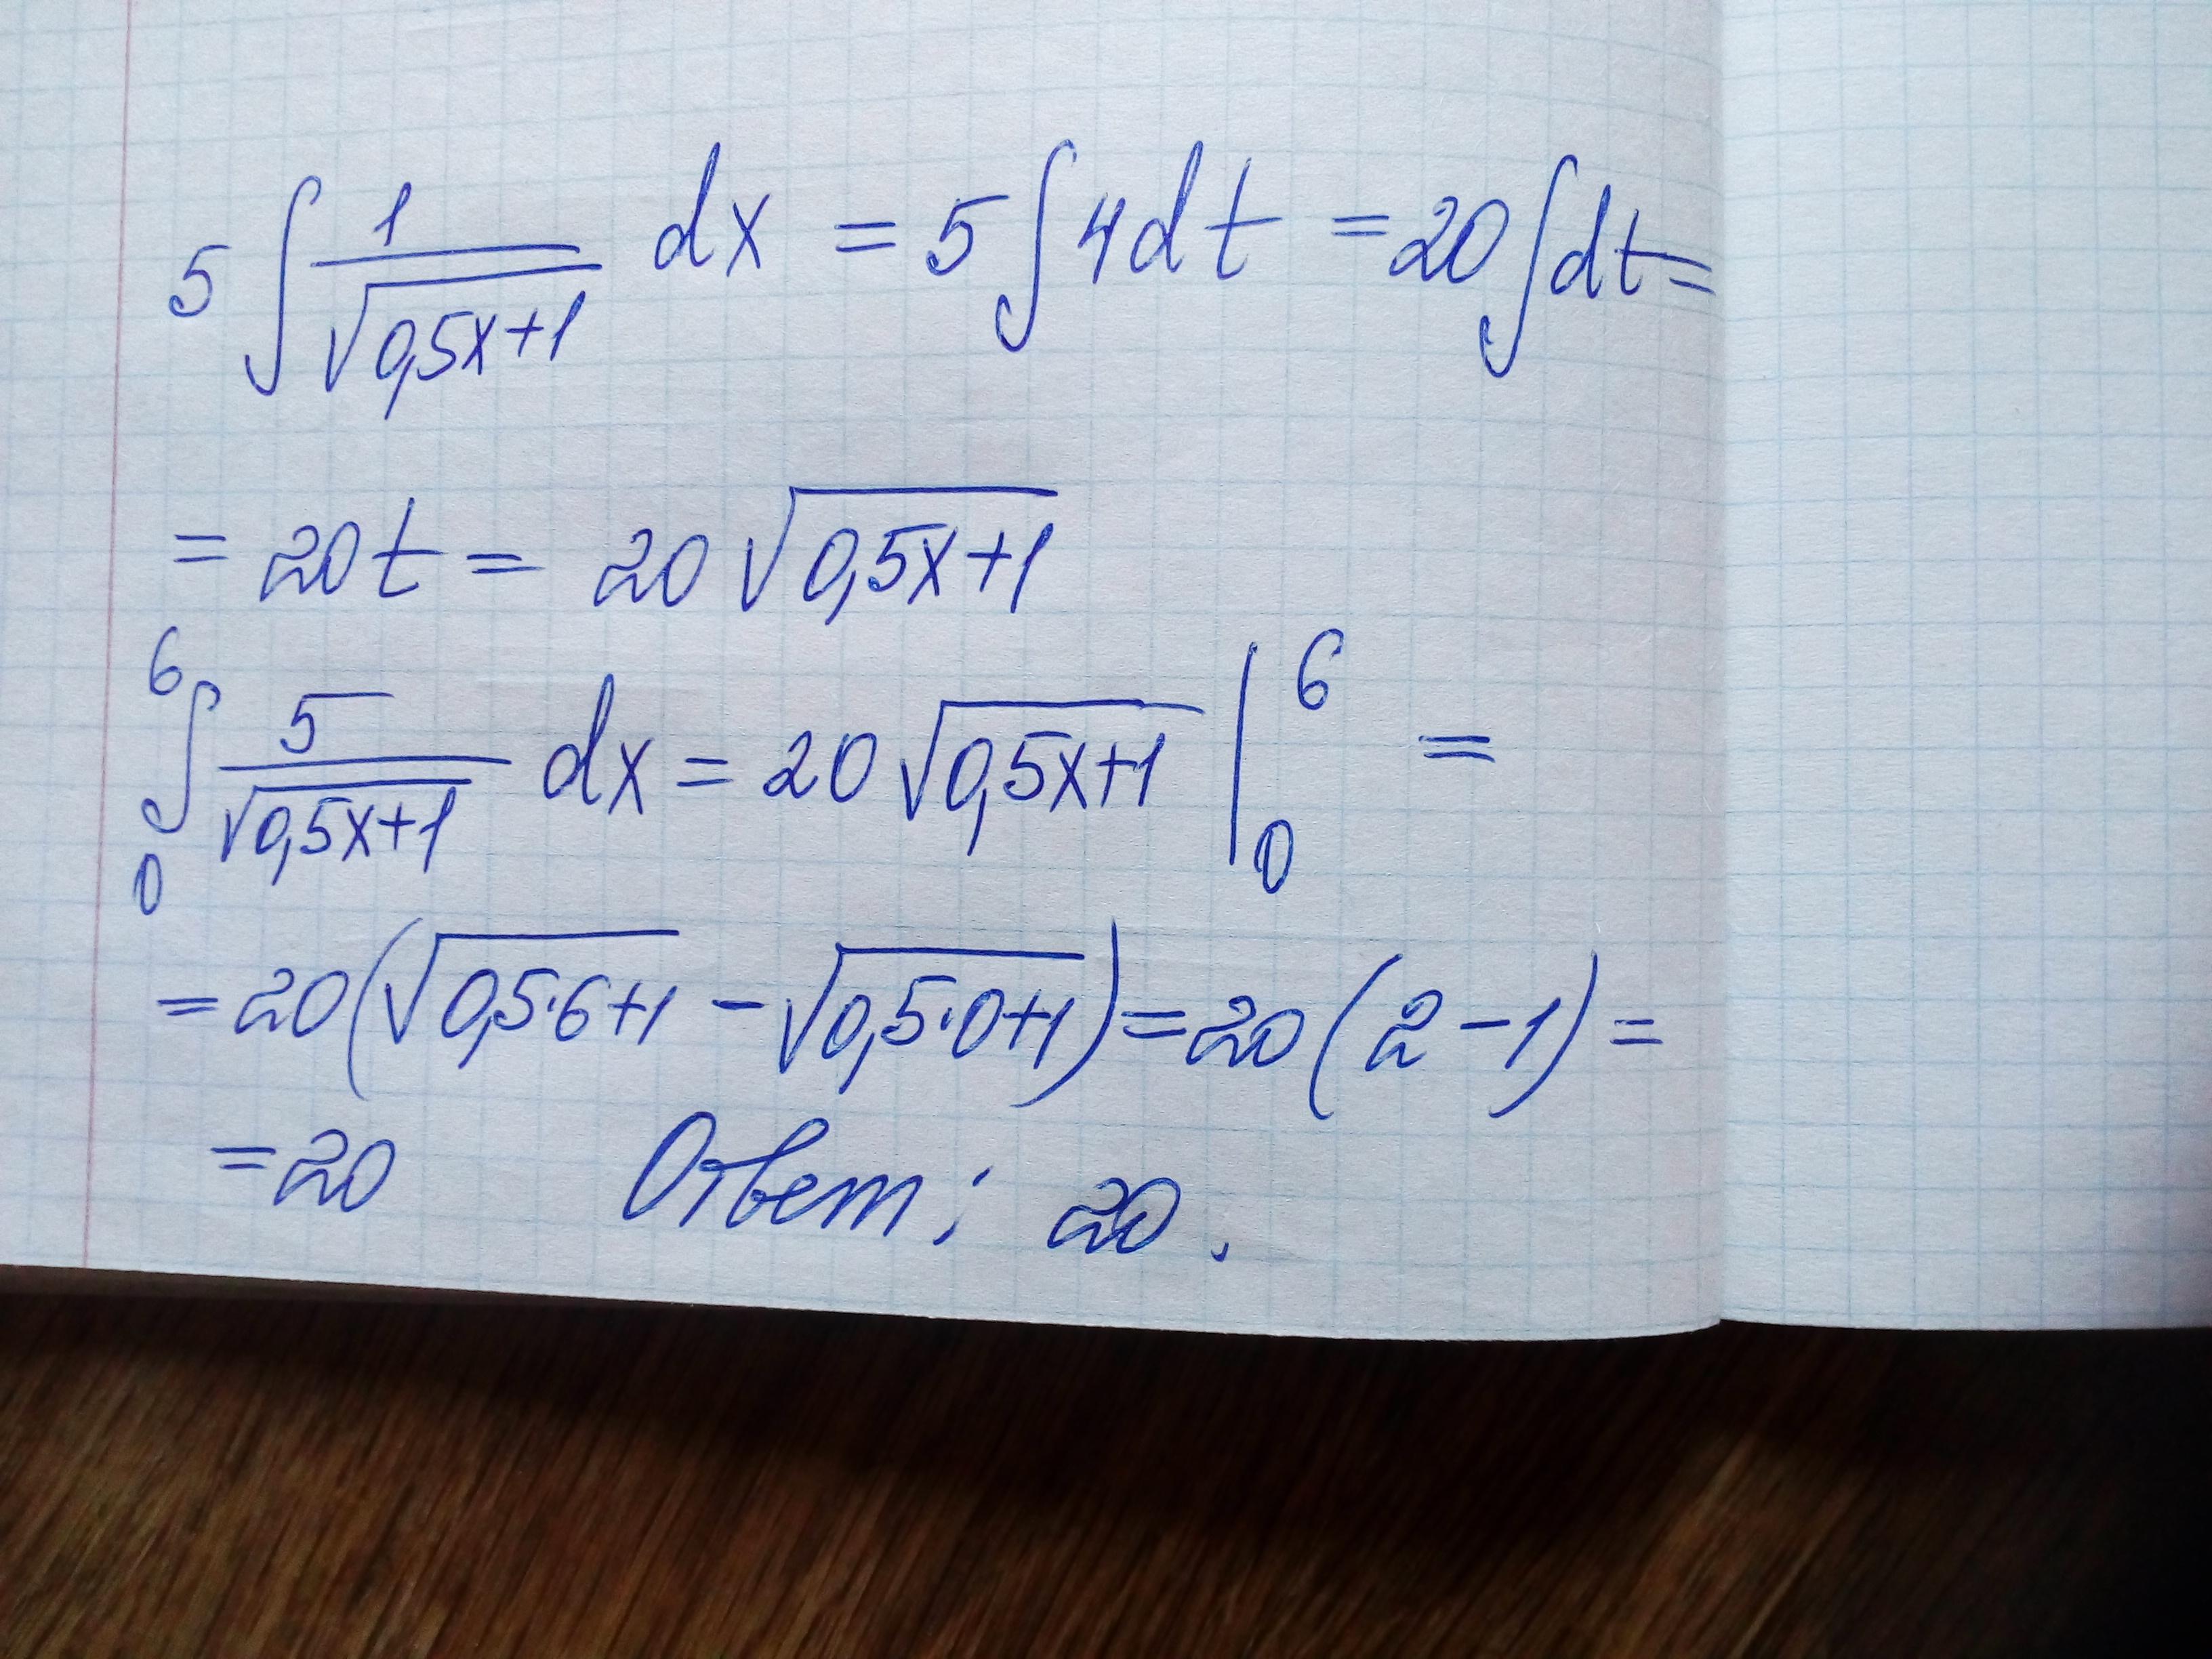 5 ∫ 1/√(0,5x+1) dx = 5∫4dt = 20∫dt =
= 20t = 20√(0,5x+1)
∫₀⁶ 5/√(0,5x+1) dx = 20√(0,5x+1) |₀⁶ =
= 20(√(0,5·6+1) - √(0,5·0+1)) = 20(2-1) =
= 20 Ответ: 20.